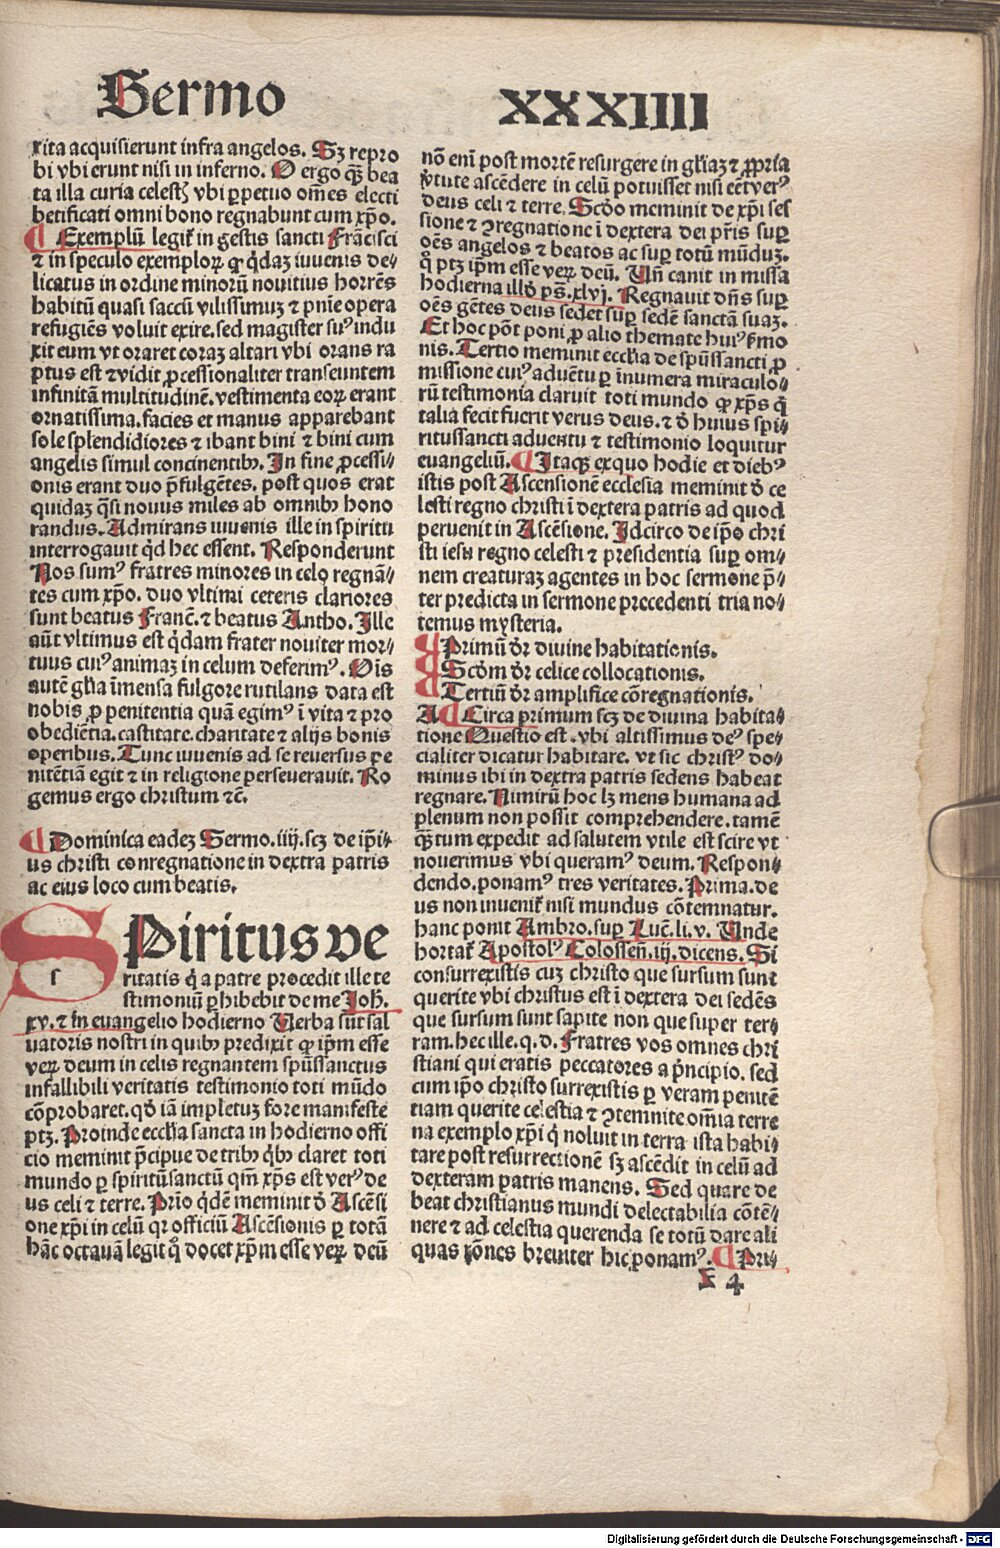 Sermo
XXXIIII
xita acquisierunt infra angelos. Sꝫ repro
bi vbi erunt nisi in inferno. O ergo qȝ bea
ta illa curia celestꝭ vbi ꝑpetuo om̄es electi
betificati omni bono regnabunt cum xp̄o.
¶ Exemplū legit᷑ in gestis sancti Frācisci
⁊ in speculo exemploꝝ ꝙ q̇daꝫ iuuenis de⸗
licatus in ordine minorū nouitius horrēs
habitū quasi saccū vilissimuꝫ ⁊ pn̄ie opera
refugiēs voluit exire. sed magister suꝰ indu
xit eum vt oraret coraꝫ altari vbi orans ra
ptus est ⁊ vidit ꝓcessionaliter transeuntem
infinitā multitudinē. vestimenta eoꝝ erant
ornatissima. facies et manus apparebant
sole splendidiores ⁊ ibant bini ⁊ bini cum
angelis simul concinentibꝫ. In fine ꝓcessi⸗
onis erant duo p̄fulgētes. post quos erat
quidaꝫ qͣsi nouus miles ab omnibꝫ hono
randus. Admirans iuuenis ille in spiritu
interrogauit q̇d hec essent. Responderunt
Nos sumꝰ fratres minores in celo regnā⸗
tes cum xp̄o. duo vltimi ceteris clariores
sunt beatus Franc̄. ⁊ beatus Antho. Ille
aūt vltimus est q̇dam frater nouiter mor⸗
tuus cuiꝰ animaꝫ in celum deferimꝰ. Oīs
autē gl̄ia īmensa fulgore rutilans data est
nobis ꝓ penitentia quā egimꝰ ī vita ⁊ pro
obediētia. castitate. charitate ⁊ alijs bonis
operibus. Tunc iuuenis ad se reuersus pe
nitētiā egit ⁊ in religione perseuerauit. Ro
gemus ergo christum ⁊c̄.
¶ Dominica eadeꝫ Sermo. iiij. scꝫ de ip̄i⸗
us christi conregnatione in dextra patris
ac eius loco cum beatis.
Spiritus ve
ritatis q̇ a patre procedit ille te
stimoniū ꝑhibebit de me Joh̄.
xv. ⁊ in euangelio hodierno Verba sūt sal
uatoris nostri in quibꝫ predixit ꝙ ip̄m esse
veꝝ deum in celis regnantem spūssanctus
infallibili veritatis testimonio toti mūdo
cōprobaret. qḋ iā impletuꝫ fore manifeste
ptꝫ. Proinde eccl̄ia sancta in hodierno offi
cio meminit p̄cipue de tribꝫ q̇bꝫ claret toti
mundo ꝑ spiritūsanctū qm̄ xp̄s est verꝰ de
us celi ⁊ terre. Prīo q̇dē meminit ď Ascēsi
one xp̄i in celū qꝛ officiū Ascēsionis ꝑ totā
hāc octauā legit᷑ qͦ docet xp̄m esse veꝝ deū
nō enī post mortē resurgere in gl̄iaꝫ ⁊ ꝓpria
v̓tute ascēdere in celū potuisset nisi eēt verꝰ
deus celi ⁊ terre. Scd̄o meminit de xp̄i ses
sione ⁊ ꝯregnatione ī dextera dei pr̄is suꝑ
oēs angelos ⁊ beatos ac suꝑ totū mūduꝫ.
qͦ ptꝫ ip̄m esse veꝝ deū. Vn̄ canit in missa
hodierna illď ps̄. xlvj. Regnauit dn̄s suꝑ
oēs gētes deus sedet suꝑ sedē sanctā suaꝫ.
Et hoc pōt poni ꝓ alio themate huiꝰ ẜmo
nis. Tertio meminit eccl̄ia de spūssancti ꝓ
missione cuiꝰ aduētu ꝑ īnumera miraculo⸗
rū testimonia claruit toti mundo ꝙ xp̄s q̇
talia fecit fuerit verus deus. ⁊ ď huius spi⸗
ritussancti aduentu ⁊ testimonio loquitur
euangeliū. ¶ Itaqȝ exquo hodie et diebꝰ
istis post Ascensionē ecclesia meminit ď ce
lesti regno christi ī dextera patris ad quod
peruenit in Ascēsione. Idcirco de ip̄o chri
sti iesu regno celesti ⁊ presidentia suꝑ om⸗
nem creaturaꝫ agentes in hoc sermone p̄⸗
ter predicta in sermone precedenti tria no⸗
temus mysteria.
¶ Primū dr̄ diuine habitationis.
¶ Scd̄m dr̄ celice collocationis.
¶ Tertiū dr̄ amplifice cōregnationis.
A ¶ Circa primum scꝫ de diuina habita⸗
tione Questio est. vbi altissimus deꝰ spe⸗
cialiter dicatur habitare. vt sic christꝰ do⸗
minus ibi in dextra patris sedens habeat
regnare. Nimirū hoc lꝫ mens humana ad
plenum non possit comprehendere. tamē
qȝtum expedit ad salutem vtile est scire vt
nouerimus vbi queramꝰ deum. Respon⸗
dendo. ponamꝰ tres veritates. Prima. de
us non inuenit᷑ nisi mundus cōtemnatur.
hanc ponit Ambro. suꝑ Luc̄. li. v. Unde
hortat᷑ Apostolꝰ Colossen̄. iij. dicens. Si
consurrexistis cuꝫ christo que sursum sunt
querite vbi christus est ī dextera dei sedēs
que sursum sunt sapite non que super ter⸗
ram. hec ille. q. d. Fratres vos omnes chri
stiani qui eratis peccatores a p̄ncipio. sed
cum ip̄o christo surrexistis ꝑ veram penitē
tiam querite celestia ⁊ ꝯtemnite om̄ia terre
na exemplo xp̄i q̇ noluit in terra ista habi⸗
tare post resurrectionē sꝫ ascēdit in celū ad
dexteram patris manens. Sed quare de
beat christianus mundi delectabilia cōtē⸗
nere ⁊ ad celestia querenda se totū dare ali
quas rōnes breuiter hic ponamꝰ. ¶ Pri⸗
z 4
Digitalisierung gefördert durch die Deutsche Forschungsgemeinschaft - DFG